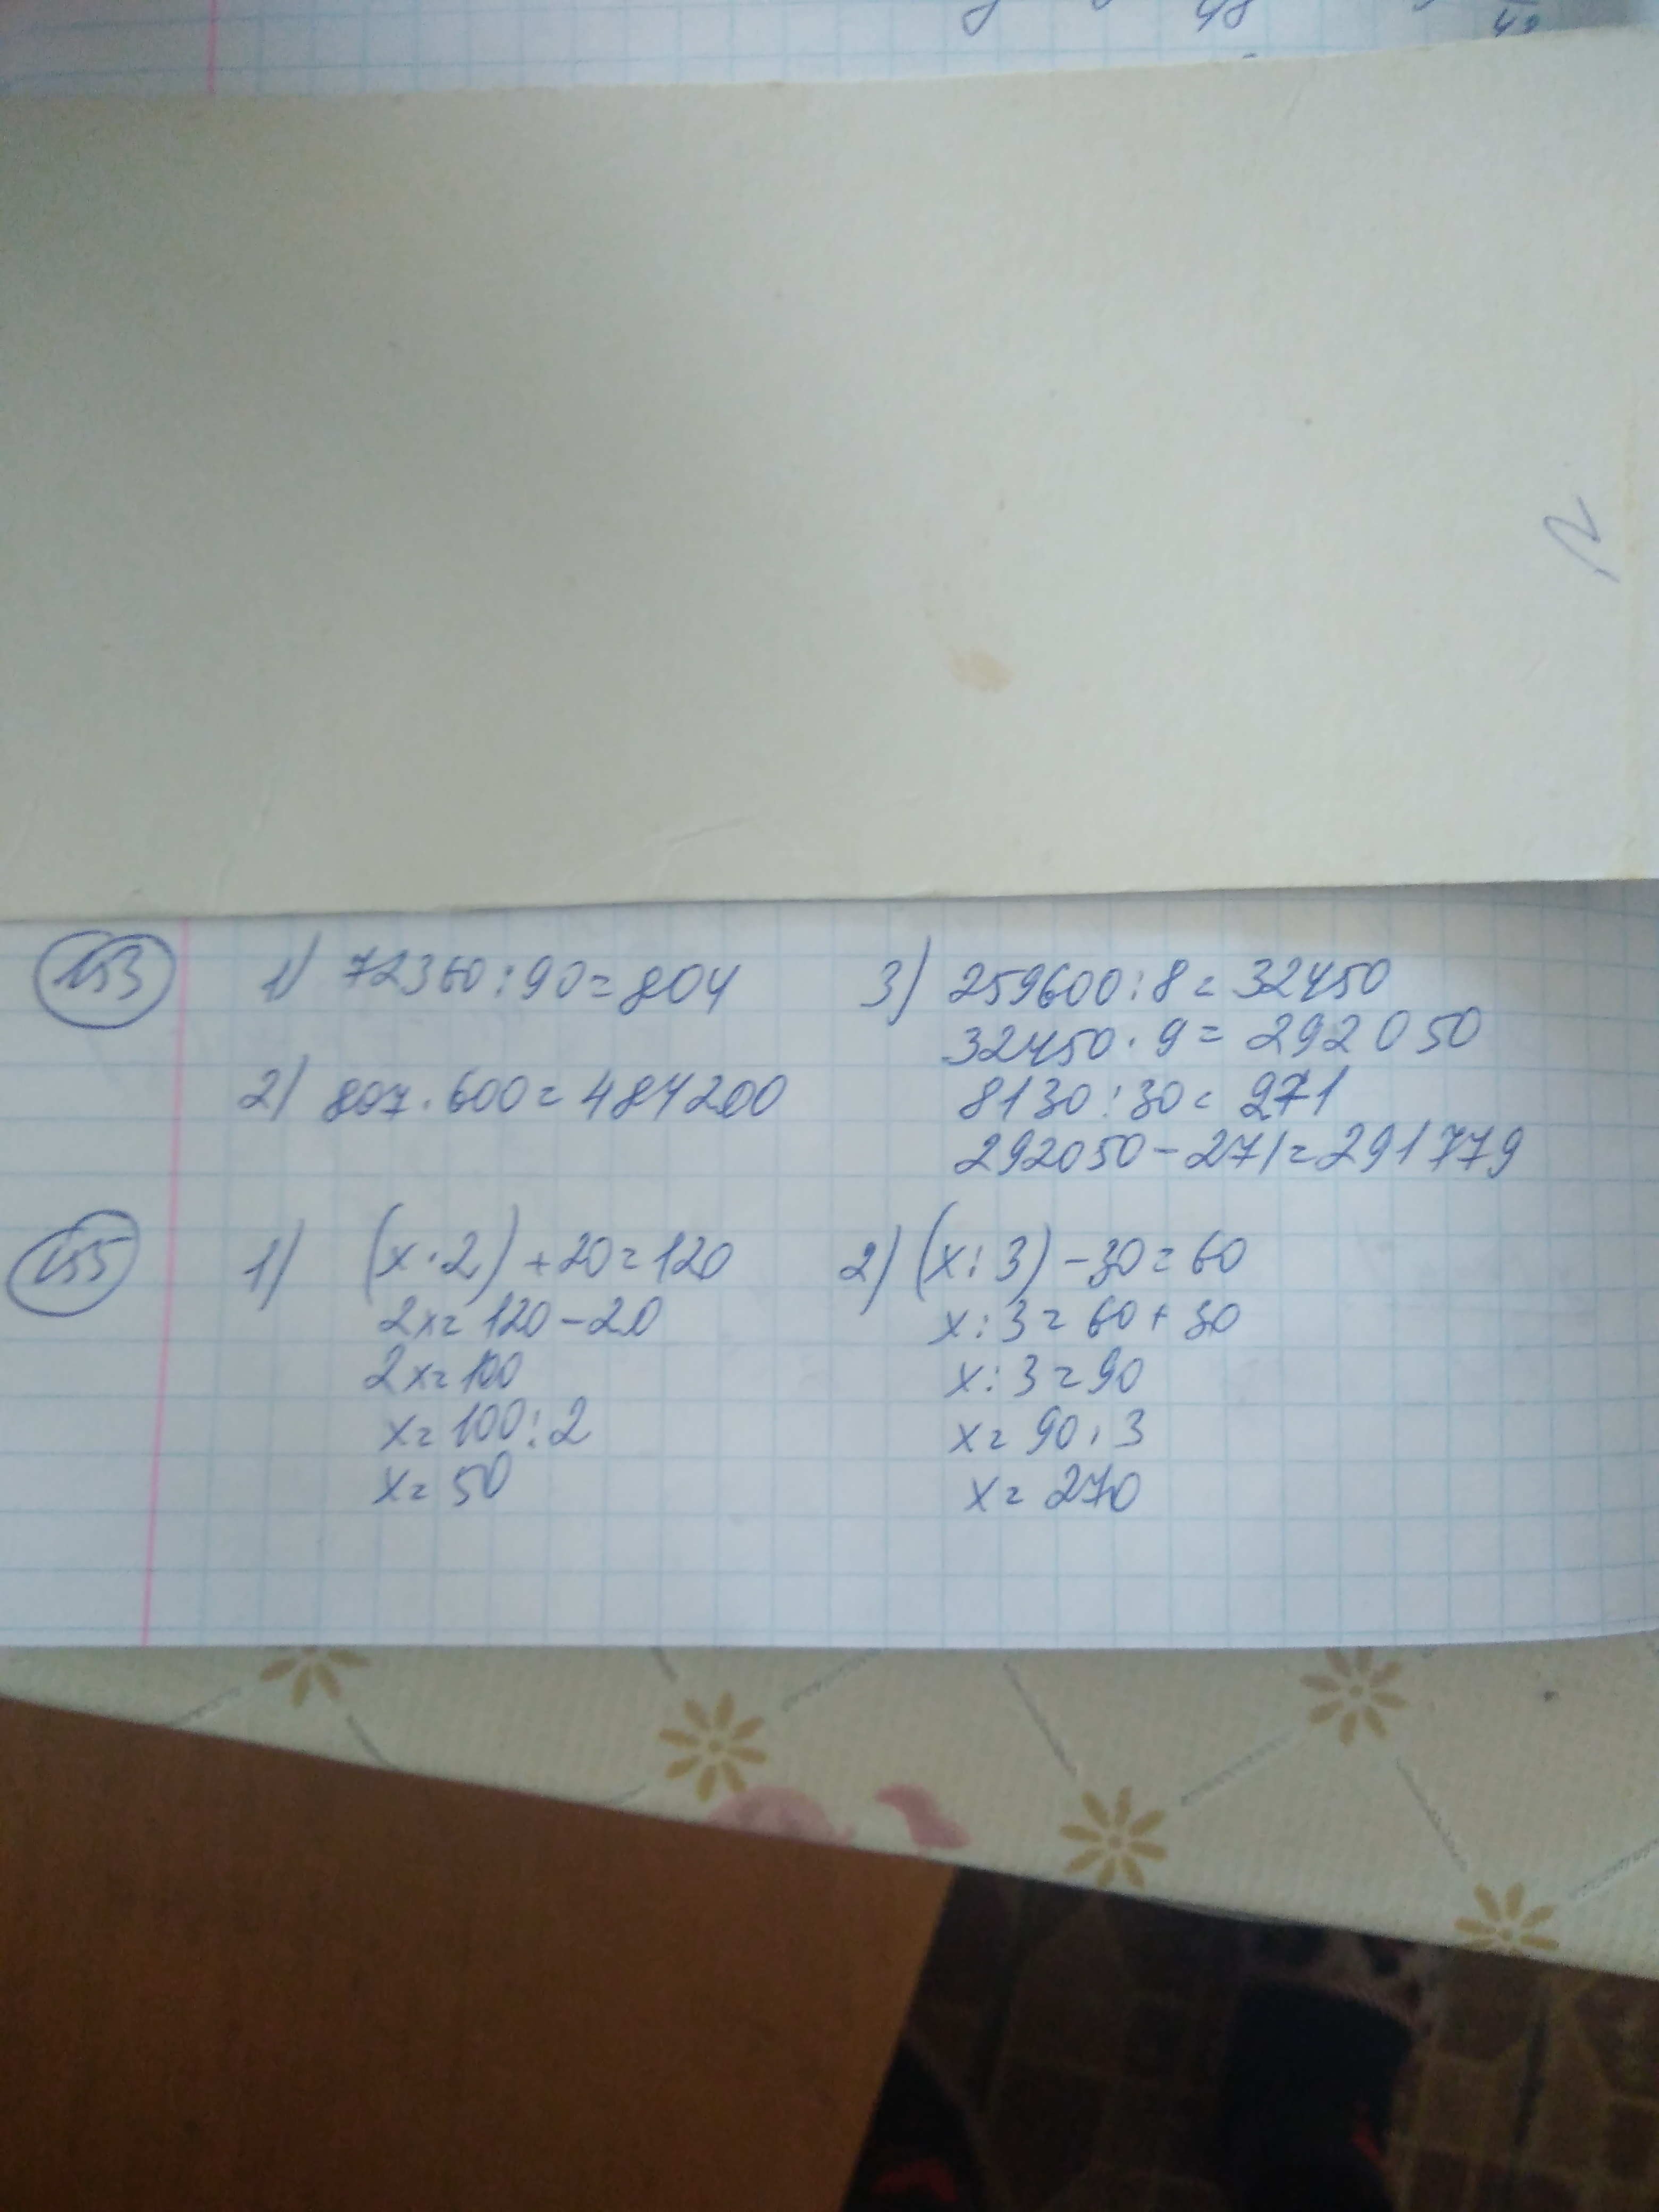 48
153 1) 72360:90=804 3) 259600:8=32450
32450·9=292050
2) 807·600=484200 8130:30=271
292050-271=291779
155 1) (x·2)+20=120 2) (x:3)-30=60
2x=120-20 x:3=60+30
2x=100 x:3=90
x=100:2 x=90·3
x=50 x=270